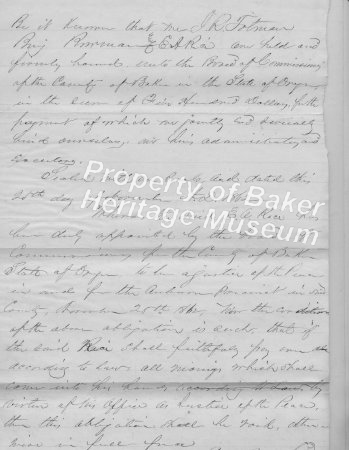 Be it Known that we J. R. Totman
Benj Bowman & E. A. Rice are held and
firmly bound unto the Board of Commissioners
of the County of Baker in the State of Oregon
in the sum of Five Hundred Dollars, for the
payment of which we jointly and severally
bind ourselves, our heirs administrators and
Executors.
Sealed with our Seals and dated this
20th day
Property of Baker
Heritage Museum
E. A. Rice has
been duly appointed by the
Commissioners for the County of Baker
State of Oregon to be a Justice of the Peace
in and for the Auburn Precinct in said
County, November 20th Now the condition
of the above obligation is such, that if
the said Rice shall faithfully pay over
according to law all moneys which shall
come into his hands according to law by
virtue of his Office as Justice of the Peace,
then this obligation shall be void, other-
wise in full force